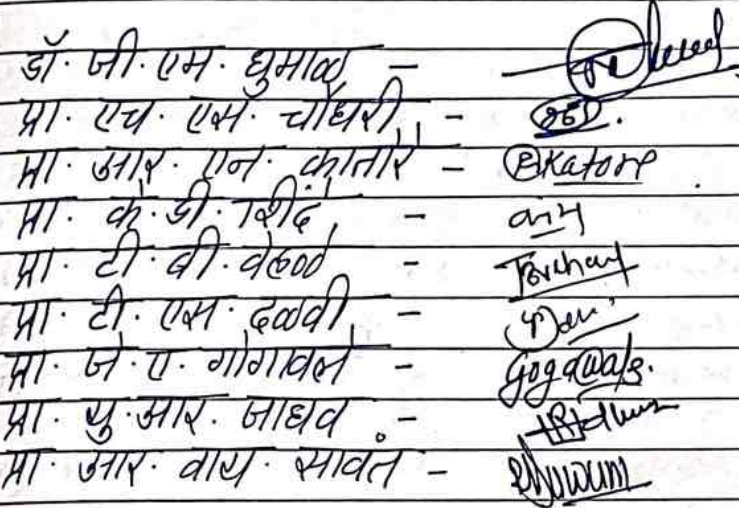 डॉ. जी. एम. घुमाळ -
प्रा. एच. एस. चौधरी -
प्रा. आर. एन. कातोरे - Katore
प्रा. के. डी. शिंदे -
प्रा. टी. बी. वेहळे -
प्रा. टी. एस. दळवी -
प्रा. जे. ए. गोगावले - Gogawale.
प्रा. यु. आर. जाधव -
प्रा. आर. वाय. सावंत -